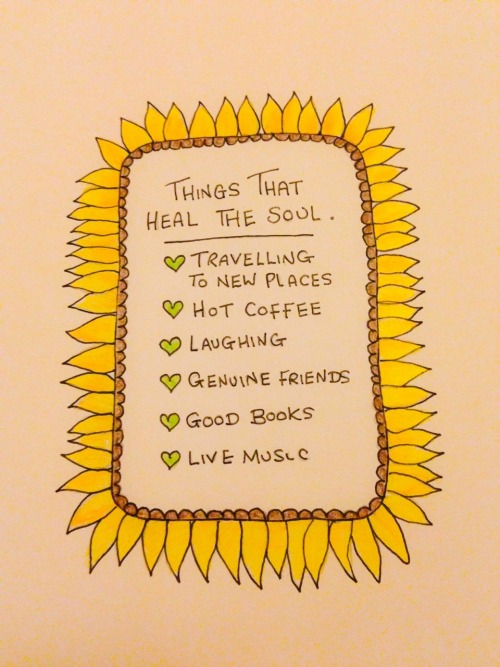 THINGS THAT
HEAL THE SOUL.
TRAVELLING
TO NEW PLACES
HOT COFFEE
LAUGHING
GENUINE FRIENDS
GOOD BOOKS
LIVE MUSIC